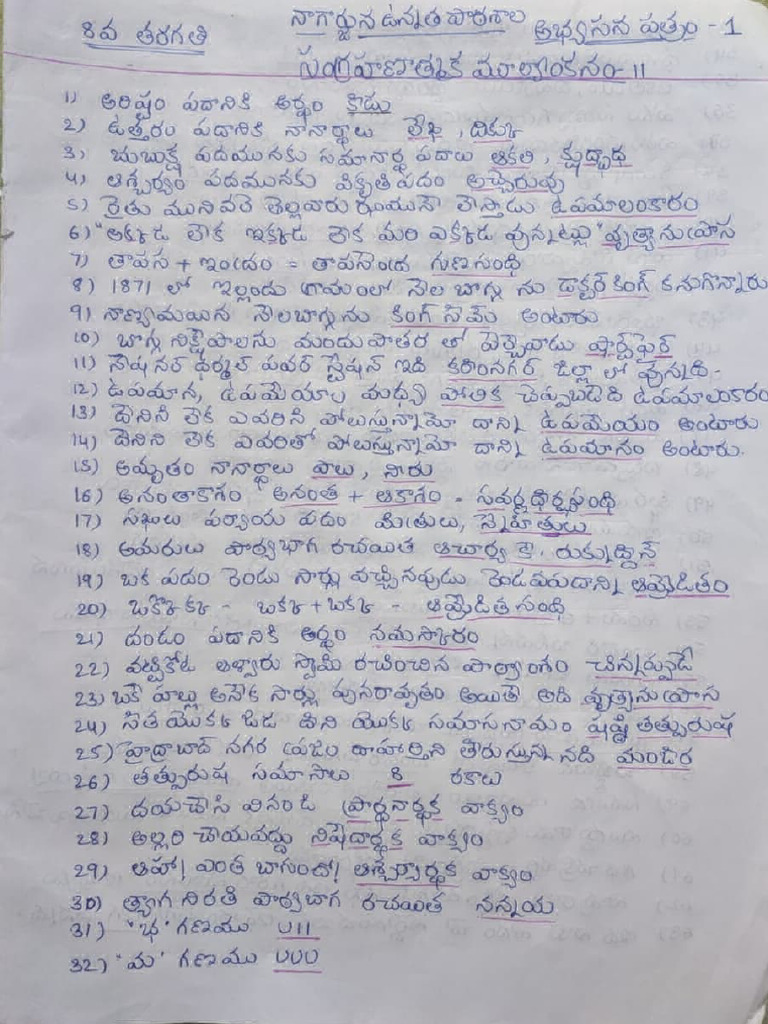 నాగార్జున ఉన్నత పాఠశాల
8వ తరగతి అభ్యసన పత్రం - 1
సంగ్రహణాత్మక మూల్యాంకనం - II
1) అరిష్టం పదానికి అర్థం కీడు
2) ఉత్తరం పదానికి నానార్థాలు లేఖ, దిక్కు
3) బుబుక్ష పదమునకు సమానార్థ పదాలు ఆకలి, క్షుద్బాధ
4) ఆశ్చర్యం పదమునకు వికృతి పదం అచ్చెరువు
5) రైతు మునివలె తెల్లవారు ఝామునే లేస్తాడు ఉపమాలంకారం
6) "అక్కడ లేక ఇక్కడ లేక మరి ఎక్కడ వున్నట్లు" వృత్యానుప్రాస
7) తాపస + ఇంద్రం = తాపసేంద్ర గుణసంధి
8) 1871 లో ఇల్లందు గ్రామంలో నేల బొగ్గు ను డాక్టర్ కింగ్ కనుగొన్నారు
9) నాణ్యమయిన నేలబొగ్గును కింగ్ సీమ్ అంటారు
10) బొగ్గు నిక్షేపాలను మందుపాతర తో పేర్చేవాడు షార్ట్ ఫైర్
11) నేషనల్ థర్మల్ పవర్ స్టేషన్ ఇది కరీంనగర్ జిల్లా లో వున్నది.
12) ఉపమాన, ఉపమేయాల మధ్య పోలిక చెప్పబడేది ఉపమాలంకారం
13) దేనిని లేక ఎవరిని పోలుస్తున్నామో దాన్ని ఉపమేయం అంటారు
14) దేనిని లేక ఎవరితో పోలుస్తున్నామో దాన్ని ఉపమానం అంటారు.
15) అమృతం నానార్థాలు పాలు, నీరు
16) అనంతాకాశం అనంత + ఆకాశం - సవర్ణదీర్ఘసంధి
17) సఖులు పర్యాయ పదం మిత్రులు, స్నేహితులు
18) అమరులు పాఠ్యభాగ రచయిత ఆచార్య కె. రుక్నుద్దీన్
19) ఒక పదం రెండు సార్లు వచ్చినపుడు రెండవపదాన్ని ఆమ్రేడితం
20) ఒక్కొక్క - ఒక్క + ఒక్క - ఆమ్రేడిత సంధి
21) దండం పదానికి అర్థం నమస్కారం
22) వట్టికోట ఆళ్వారు స్వామి రచించిన పాఠ్యాంశం చిన్నప్పుడే
23) ఒకే హల్లు అనేక సార్లు పునరావృతం అయితే అది వృత్యానుప్రాస
24) సీత యొక్క ఓడ దీని యొక్క సమాసనామం షష్ఠి తత్పురుష
25) హైద్రాబాద్ నగర ప్రజల దాహార్తిని తీరుస్తున్న నది మంజీర
26) తత్పురుష సమాసాలు 8 రకాలు
27) దయచేసి వినండి ప్రార్థనార్థక వాక్యం
28) అల్లరి చేయవద్దు నిషేదార్థక వాక్యం
29) ఆహా! ఎంత బాగుందో! ఆశ్చర్యార్థక వాక్యం
30) త్యాగ నిరతి పాఠ్యబాగ రచయిత నన్నయ
31) 'భ' గణము UII
32) 'మ' గణము UUU